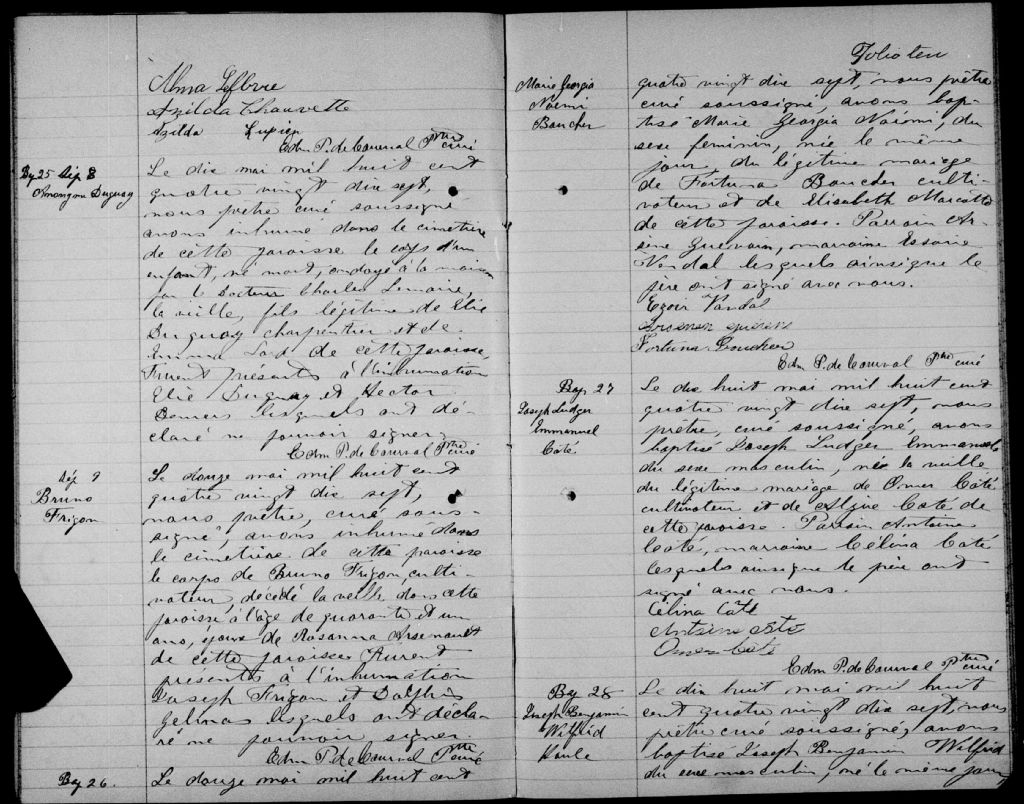 Alma Lefbvre
Azilda Chauvette
Azilda Lupien
Edm P. de Courval Ptre curé
Bap 25 Sép 8
Anonyme Duguay
Le dix mai mil huit cent
quatre vingt dix sept,
nous prêtre curé soussigné
avons inhumé dans le cimetière
de cette paroisse le corps d'un
enfant, né mort, ondoyé à la maison
par le Docteur Charles Lemaire,
la veille, fils légitime de Elie
Duguay charpentier et de
de cette paroisse,
Furent présents à l'inhumation
Elie Duguay et Hector
Demers lesquels ont dé-
claré ne pouvoir signer.
Edm P. de Courval Ptre curé
Sép 9
Bruno
Frigon
Le douze mai mil huit cent
quatre vingt dix sept,
nous prêtre, curé sous-
signé, avons inhumé dans
le cimetière de cette paroisse
le corps de Bruno Frigon, culti-
vateur, décédé la veille dans cette
paroisse à l'âge de quarante et un
ans, époux de Rosanna Arsenault
de cette paroisse. Furent
présents à l'inhumation
Joseph Frigon et Dolphis
Gelinas lesquels ont décla-
ré ne pouvoir signer.
Edm P. de Courval Ptre curé
Bap 26.
Le douze mai mil huit cent
Folio ten
Marie Georgia
Noémi
Boucher
quatre vingt dix sept, nous prêtre
curé soussigné, avons bap-
tisé Marie Georgia Noémi, du
sexe féminin, née le même
jour, du légitime mariage
de Fortuna Boucher culti-
vateur et de Elisabeth Marcotte
de cette paroisse. Parrain Ar-
sène marraine
Vandal lesquels ainsi que le
père ont signé avec nous.
Ezoir Vandal
Fortuna Boucher
Edm P. de Courval Ptre curé
Bap 27
Joseph Ludger
Emmanuel
Coté
Le dix huit mai mil huit cent
quatre vingt dix sept, nous
prêtre, curé soussigné, avons
baptisé Joseph Ludger Emmanuel
du sexe masculin, née la veille
du légitime mariage de Omer Coté
cultivateur et de Coté de
cette paroisse. Parrain Antoine
Coté, marraine Célina Coté
lesquels ainsi que le père ont
signé avec nous.
Célina Côté
Antoine Coté
Omer Coté
Edm P. de Courval Ptre curé
Bap 28
Joseph Benjamin
Wilfrid
Houle
Le dix huit mai mil huit
cent quatre vingt dix sept, nous
prêtre curé soussigné, avons
baptisé Joseph Benjamin Wilfrid
du sexe masculin, né le même jour